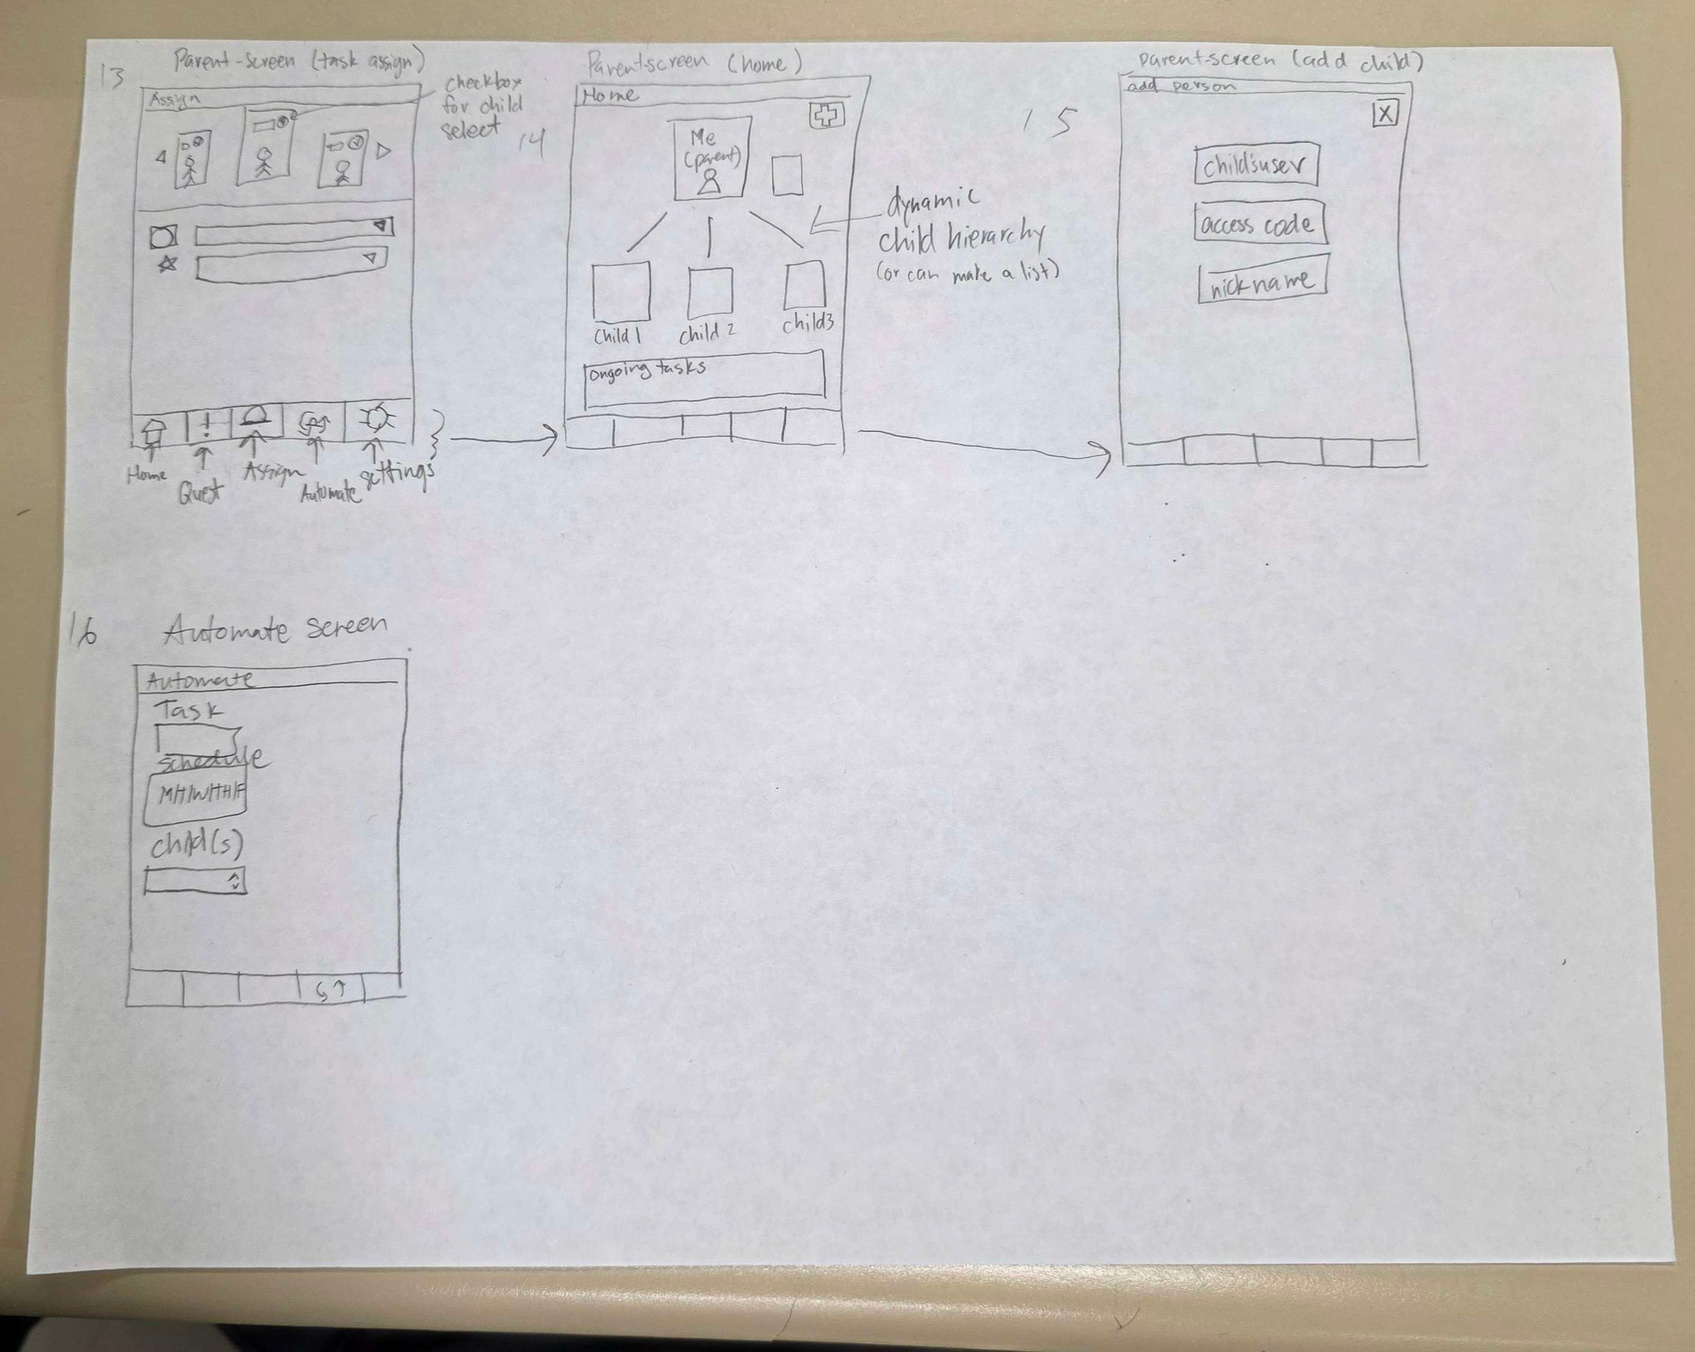 13
Parent-Screen (task assign)
Assign
checkbox
for child
select
Home
Quest
Assign
Automate
settings
14
Parentscreen (home)
Home
Me
(parent)
dynamic
child hierarchy
(or can make a list)
child 1
child 2
child3
ongoing tasks
15
parentscreen (add child)
add person
X
child'suser
access code
nickname
16
Automate screen
Automate
Task
schedule
child(s)